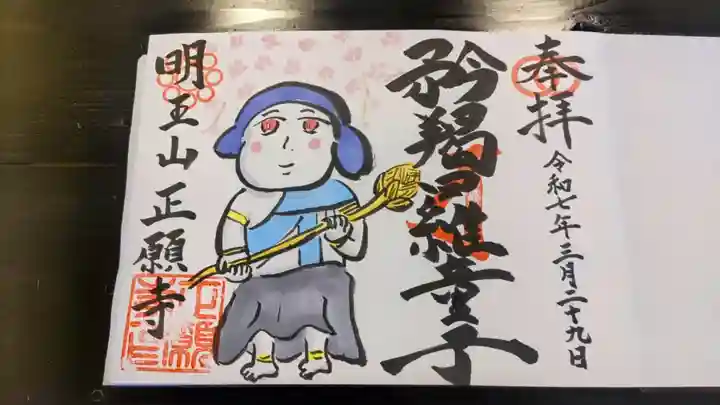 奉拝
令和七年三月二十九日
矜羯羅童子
明王山正願寺